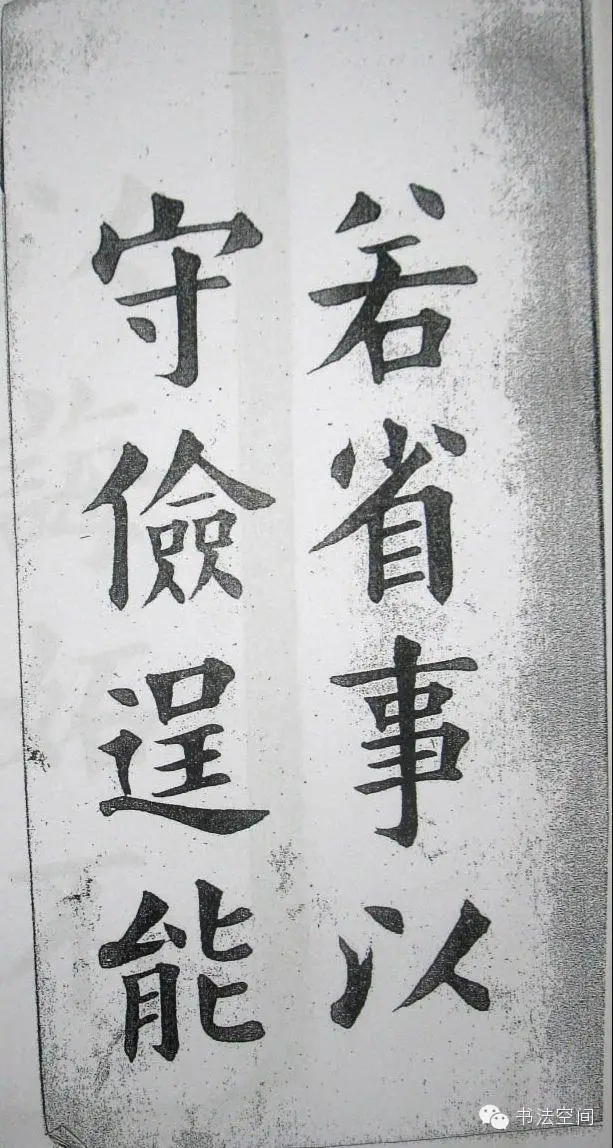 若省事以
守儉逞能
书法空间